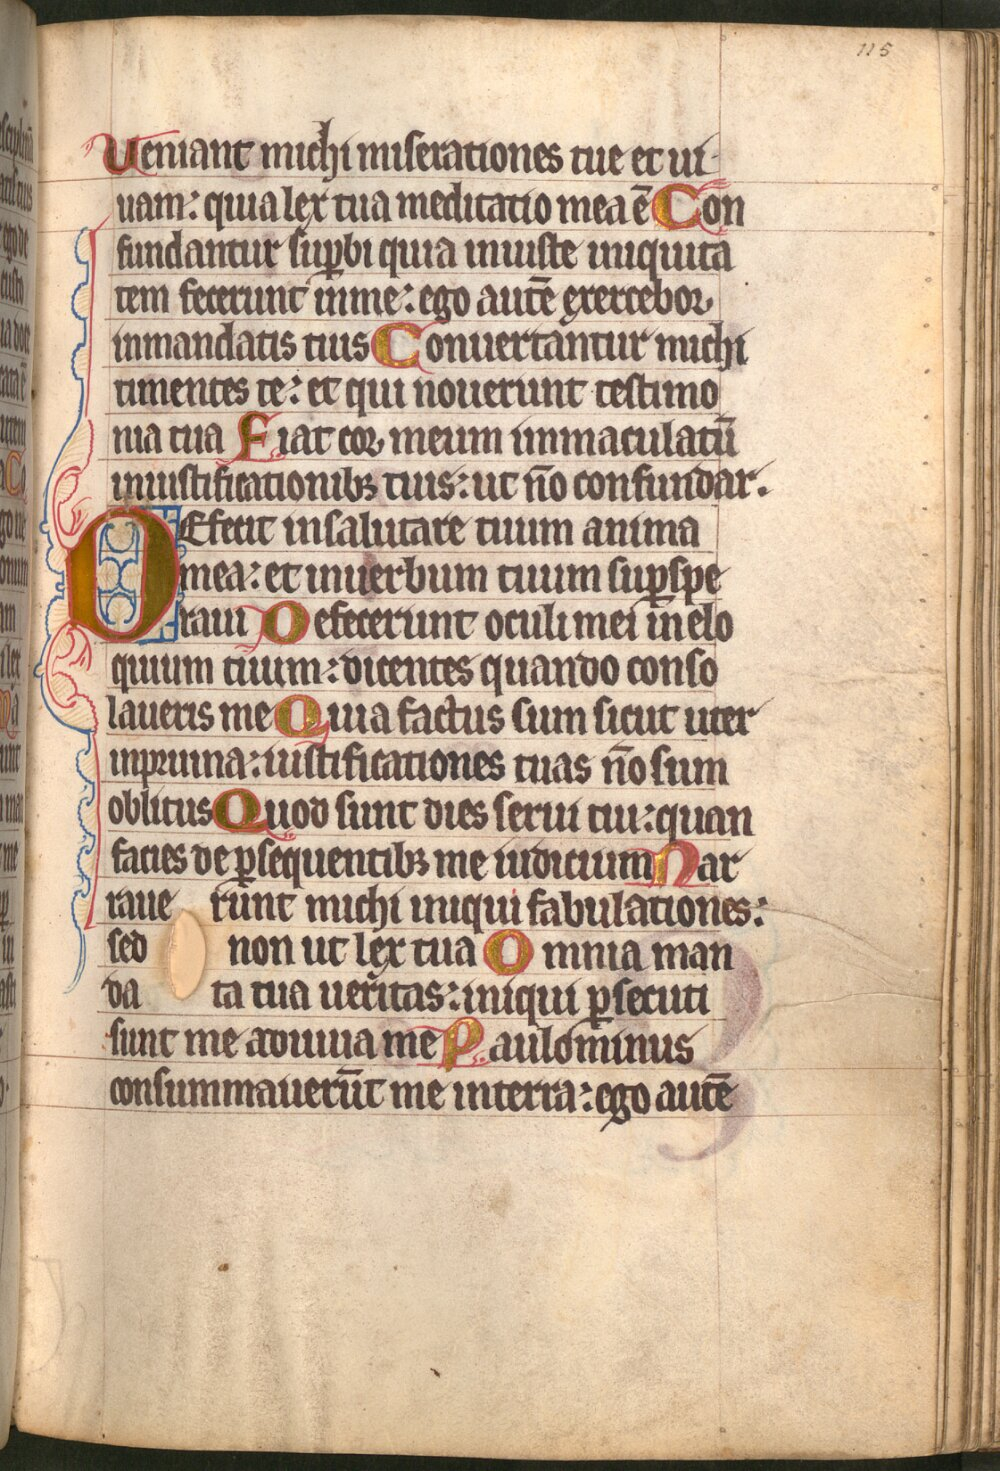 115
Ueniant michi miserationes tue et ui
uam: quia lex tua meditatio mea ē Con
fundantur suꝑbi quia iniuste iniquita
tem fecerunt inme: ego autē exercebor
inmandatis tuis Conuertantur michi
timentes te: et qui nouerunt testimo
nia tua Fiat cor meum immaculatū
iniustificationibꝫ tuis: ut nō confundar.
DEfecit insalutare tuum anima
mea: et inuerbum tuum suꝑspe
raui Defecerunt oculi mei inelo
quium tuum: dicentes quando conso
laueris me Quia factus sum sicut uter
inpruina: iustificationes tuas nō sum
oblitus Quod sunt dies serui tui: quan
facies de ꝑsequentibꝫ me iudicium Nar
raue runt michi iniqui fabulationes:
sed non ut lex tua Omnia man
da ta tua ueritas: iniqui ꝑsecuti
sunt me adiuua me Paulominus
consummauerūt me interra: ego autē